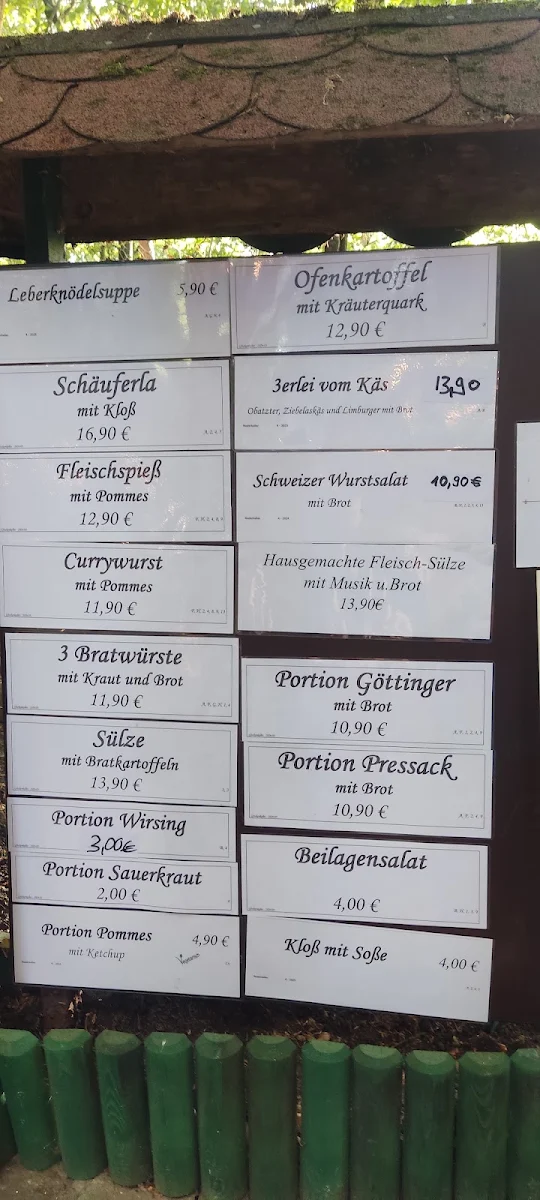 Leberknödelsuppe 5,90 €
Schäuferla
mit Kloß
16,90 €
Fleischspieß
mit Pommes
12,90 €
Currywurst
mit Pommes
11,90 €
3 Bratwürste
mit Kraut und Brot
11,90 €
Sülze
mit Bratkartoffeln
13,90 €
Portion Wirsing
3,00€
Portion Sauerkraut
2,00 €
Portion Pommes 4,90 €
mit Ketchup
Ofenkartoffel
mit Kräuterquark
12,90 €
3erlei vom Käs 13,90
Obatzter, Ziebelaskäs und Limburger mit Brot
Schweizer Wurstsalat 10,90€
mit Brot
Hausgemachte Fleisch-Sülze
mit Musik u.Brot
13,90€
Portion Göttinger
mit Brot
10,90 €
Portion Pressack
mit Brot
10,90 €
Beilagensalat
4,00 €
Kloß mit Soße
4,00 €